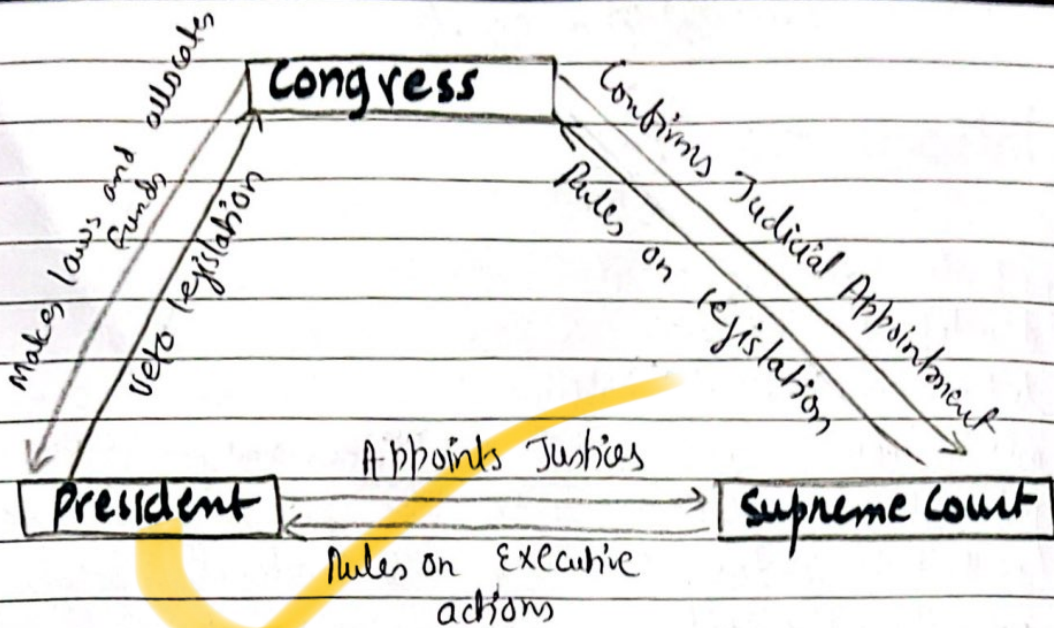 Congress
Makes laws and allocates
funds
Veto legislation
Confirms Judicial Appointment
Rules on legislation
President
Appoints Justices
Supreme Court
Rules on Executive
actions